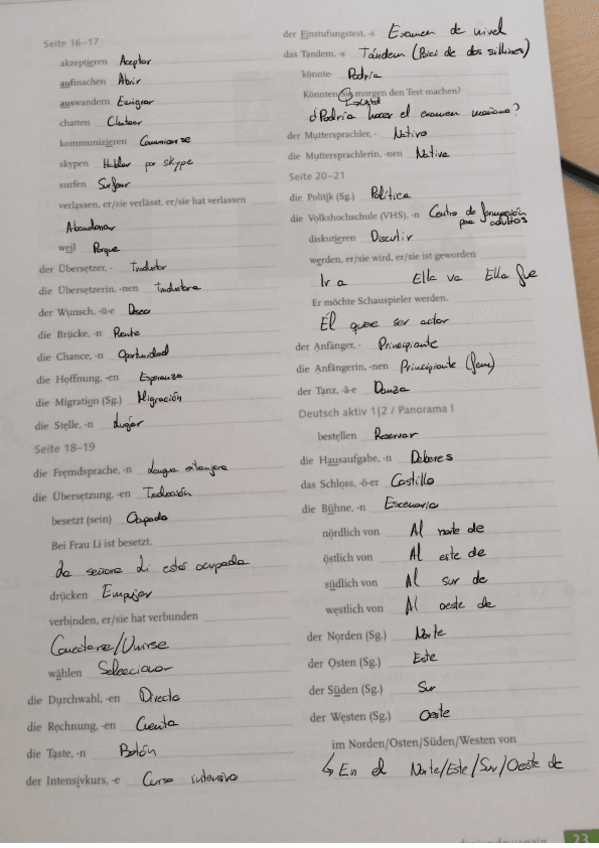 Seite 16–17
akzeptieren Aceptar
aufmachen Abrir
auswandern Emigrar
chatten Chatear
kommunizieren Comunicarse
skypen Hablar por skype
surfen Surfear
verlassen, er/sie verlässt, er/sie hat verlassen
Abandonar
weil Porque
der Übersetzer, - Traductor
die Übersetzerin, -nen Traductora
der Wunsch, -ü-e Deseo
die Brücke, -n
die Chance, -n Oportunidad
die Hoffnung, -en Esperanza
die Migration (Sg.) Migración
die Stelle, -n Lugar
Seite 18–19
die Fremdsprache, -n Lengua extranjera
die Übersetzung, -en Traducción
besetzt (sein) Ocupado
Bei Frau Li ist besetzt.
La señora Li está ocupada
drücken Empujar
verbinden, er/sie hat verbunden
Conectarse/Unirse
wählen Seleccionar
die Durchwahl, -en Directo
die Rechnung, -en Cuenta
die Taste, -n Botón
der Intensivkurs, -e Curso intensivo
der Einstufungstest, -s Examen de nivel
das Tandem, -s Tándem (Bici de dos sillines)
könnte- Podría
Könnten Sie morgen den Test machen?
¿Podría hacer el examen mañana?
der Muttersprachler, - Nativo
die Muttersprachlerin, -nen Nativa
Seite 20–21
die Politik (Sg.) Política
die Volkshochschule (VHS), -n Centro de formación
para adultos
diskutieren Discutir
werden, er/sie wird, er/sie ist geworden
Ir a Ella va Ella fue
Er möchte Schauspieler werden.
El quiere ser actor
der Anfänger, - Principiante
die Anfängerin, -nen Principiante (fem)
der Tanz, -ä-e Danza
Deutsch aktiv 1|2 / Panorama I
bestellen Reservar
die Hausaufgabe, -n Deberes
das Schloss, -ö-er Castillo
die Bühne, -n Escenario
nördlich von Al norte de
östlich von Al este de
südlich von Al sur de
westlich von Al oeste de
der Norden (Sg.) Norte
der Osten (Sg.) Este
der Süden (Sg.) Sur
der Westen (Sg.) Oeste
im Norden/Osten/Süden/Westen von
↳ En el Norte/Este/Sur/Oeste de
23